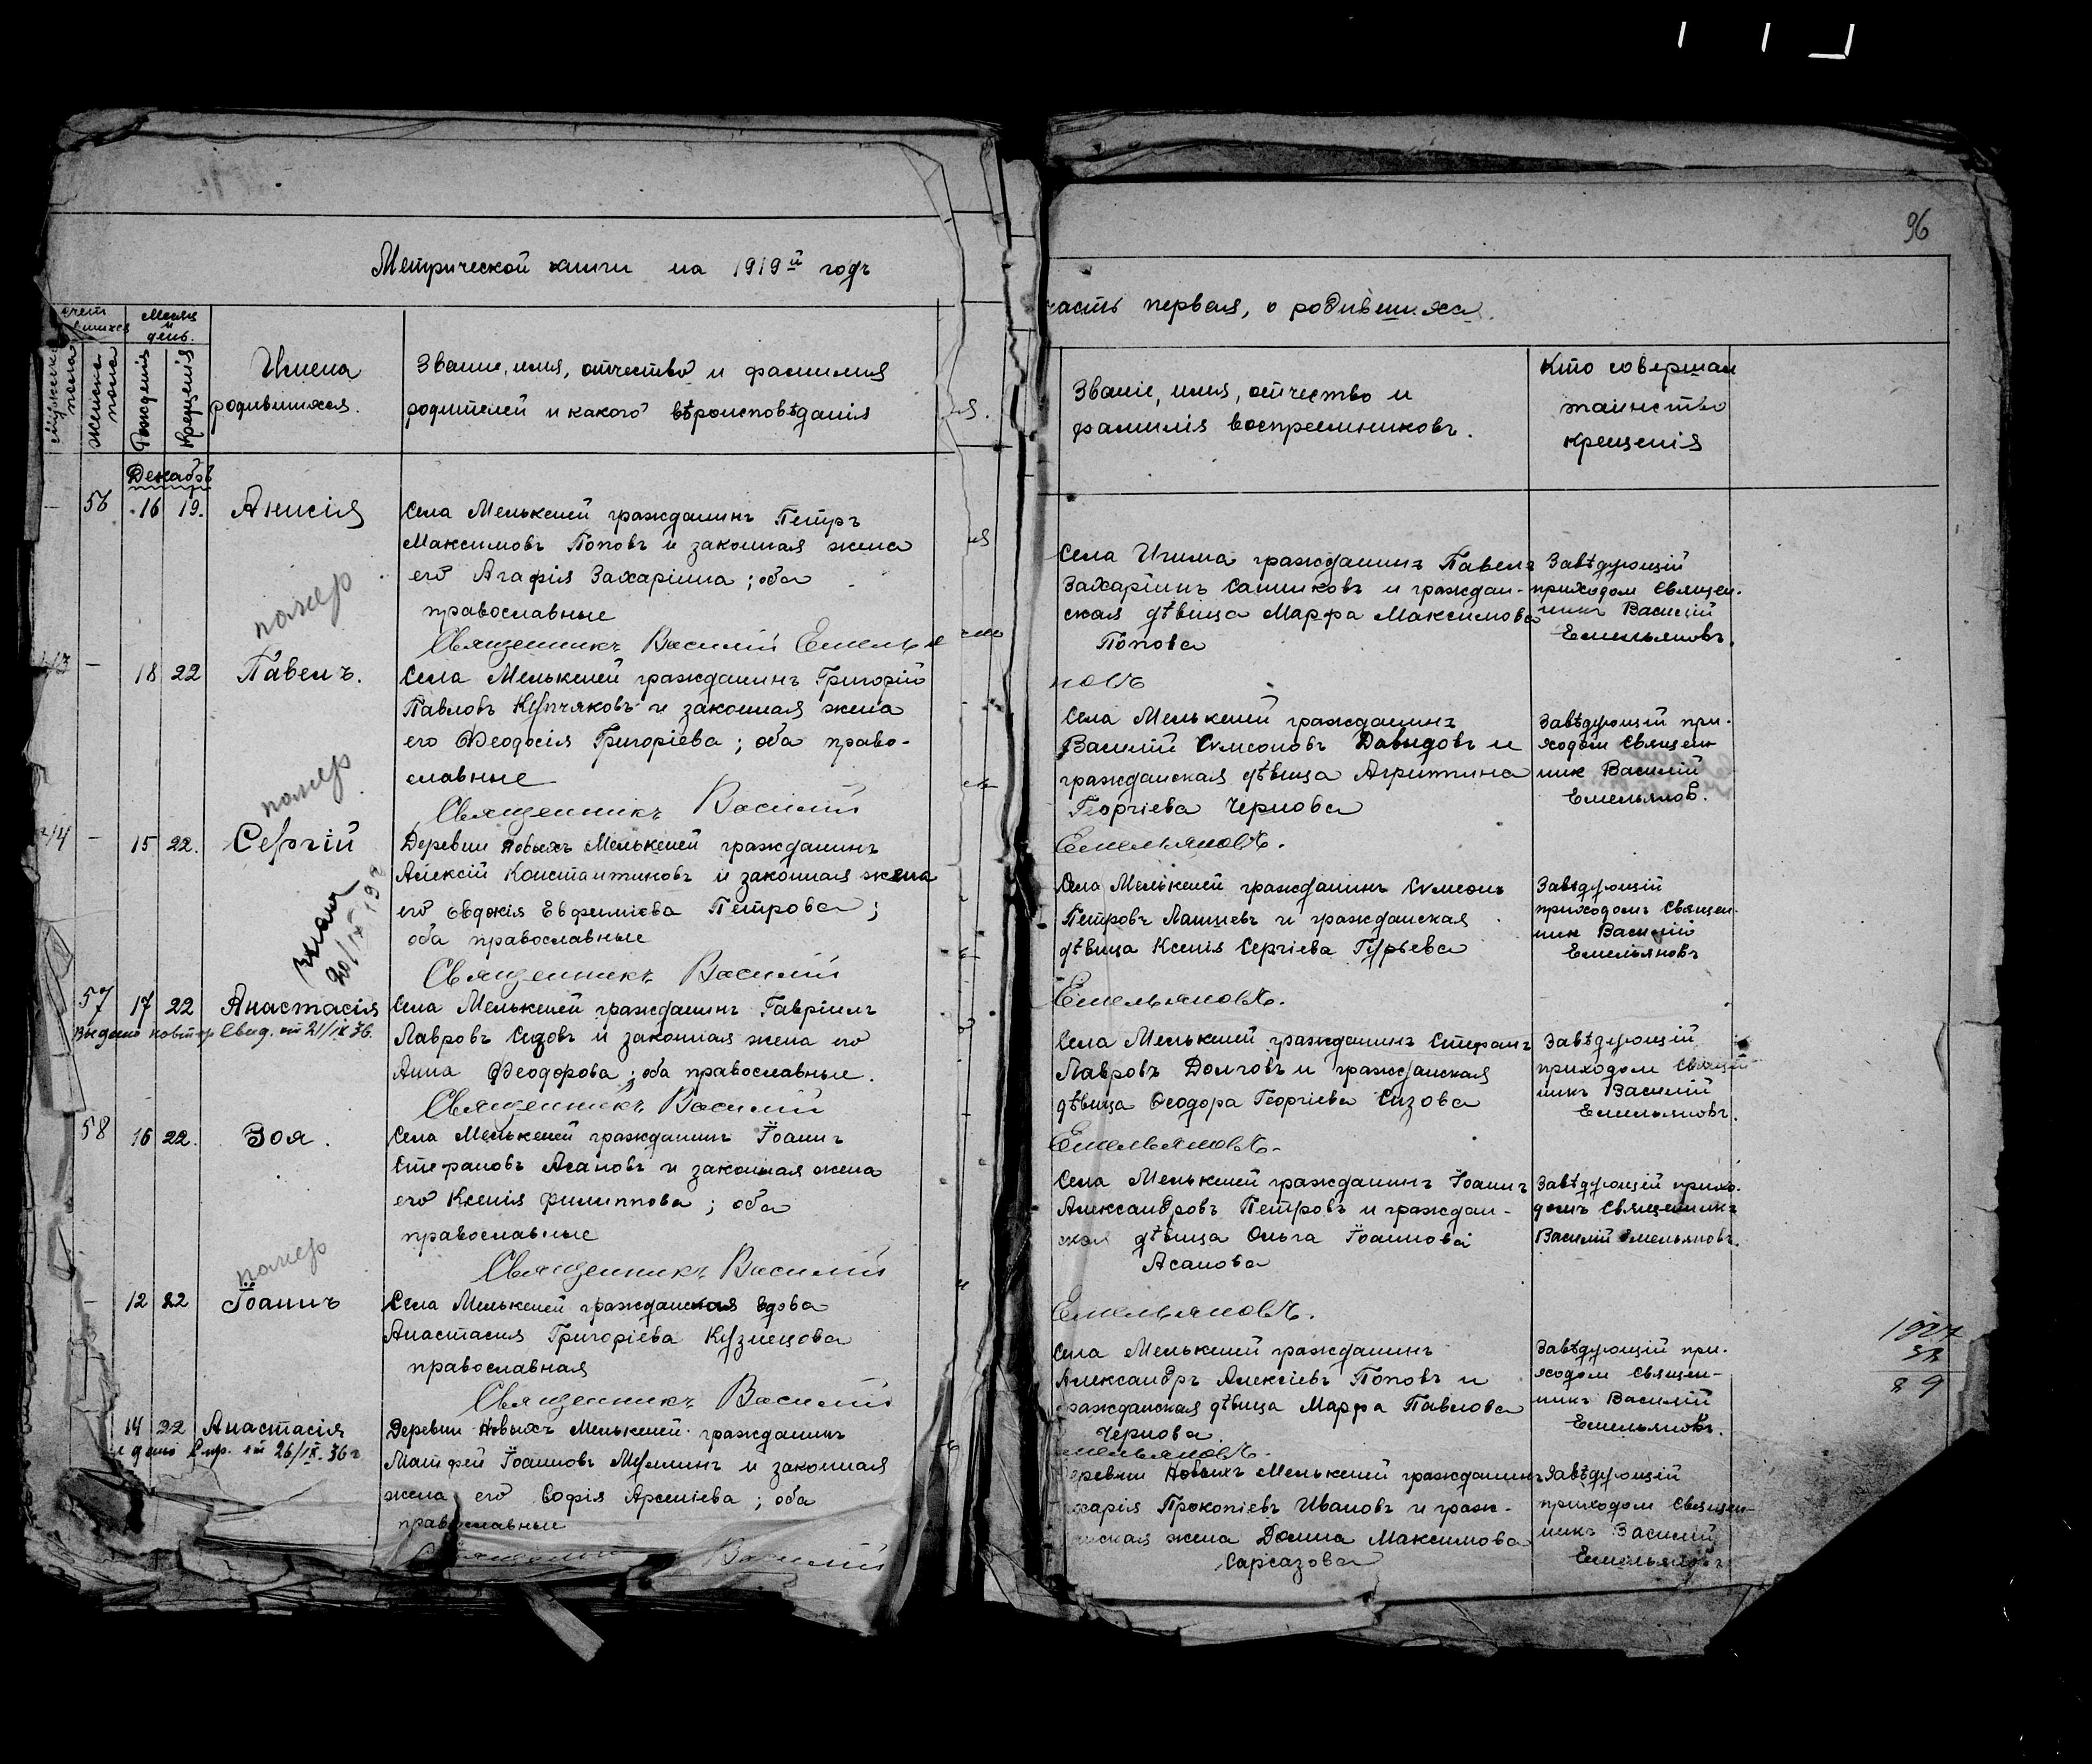 96
Метрической книги на 1919й годъ
часть первая, о родившихся.
Месяц
и
день.
мужска
пола
женска
пола
Рожденія
Крещенія
Имена
родившихся.
Званіе, имя, отчество и фамилия
родителей и какого вѣроисповѣданія
Званіе, имя, отчество и
фамилія воспреемниковъ.
Кто совершал
таинство
крещенія
Декабрь
56 16 19. Анисія
Села Мелькеней гражданинъ Петръ
Максимовъ Поповъ и законная жена
его Агафія Захаріина; оба
православные
Священникъ Василій Емелья
новъ
Села Игима гражданинъ Павелъ
Захаріинъ Санниковъ и граждан-
ская дѣвица Марфа Максимова
Попова
Завѣдующій
приходом Священ-
никъ Василій
Емельяновъ.
помер
— 18 22 Павелъ.
Села Мелькеней гражданинъ Григорій
Павловъ Купчяковъ и законная жена
его Ѳеодосія Григоріева; оба право-
славные
Священникъ Василій
Емельяновъ.
Села Мелькеней гражданинъ
Василій Сѵмеоновъ Давыдовъ и
гражданская дѣвица Агрипина
Георгіева Чернова
Завѣдующій при-
ходом Священ-
ник Василій
Емельянов.
помер
— 15 22. Сергій
Деревни Новыхъ Мелькеней гражданинъ
Алексій Константиновъ и законная жена
его Евдокія Евфиміева Петрова;
оба православные
Священникъ Василій
Емельяновъ.
Села Мелькеней гражданинъ Сѵмеонъ
Петровъ Лапшевъ и гражданская
дѣвица Ксенія Сергіева Гурьева
Завѣдующій
приходомъ Священ-
ник Василій
Емельяновъ
57 17 22 Анастасія
Выдано повтор Свид. от 21/IX 36.
Села Мелькеней гражданинъ Гавріилъ
Лавровъ Сизовъ и законная жена его
Анна Ѳеодорова; оба православные.
Священникъ Василій
Емельяновъ.
Села Мелькеней гражданинъ Стефанъ
Лавровъ Долговъ и гражданская
дѣвица Ѳеодора Георгіева Сизова
Завѣдующій
приходом Священ
никъ Василій
Емельяновъ.
58 16 22. Зоя.
Села Мелькеней гражданинъ Іоаннъ
Стефановъ Асановъ и законная жена
его Ксенія Филиппова; оба
православные
Священникъ Василій
Емельяновъ.
Села Мелькеней гражданинъ Іоаннъ
Александровъ Петровъ и граждан-
ская дѣвица Ольга Іоаннова
Асанова
Завѣдующій прихо-
домъ Священникъ
Василій Емельяновъ.
помер
— 12 22 Іоаннъ
Села Мелькеней гражданская вдова
Анастасия Григоріева Кузнецова
православная
Священникъ Василій
Емельяновъ.
Села Мелькеней гражданинъ
Александръ Алексіевъ Поповъ и
гражданская дѣвица Марфа Павлова
Чернова
Завѣдующій при-
ходом Священ-
никъ Василій
Емельяновъ.
14 22 Анастасія
26/IX. 36 г
Деревни Новыхъ Мелькеней гражданинъ
Матфей Іоанновъ Муллинъ и законная
жена его Софія Арсеніева; оба
православные
Священникъ Василій
Деревни Новыхъ Мелькеней гражданинъ
Захарія Прокопіевъ Ивановъ и граж-
данская жена Домна Максимова
Сарсазова
Завѣдующій
приходом Священ-
никъ Василій
Емельяновъ